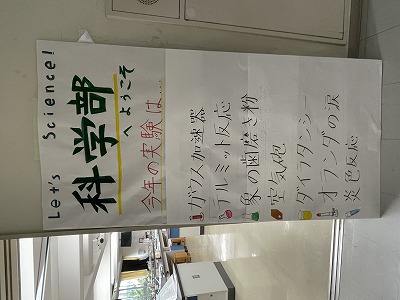 Let's Science!
科学部
へようこそ
今年の実験は…
ガウス加速器
テルミット反応
象の歯磨き粉
空気砲
ダイラタンシー
オランダの涙
炎色反応